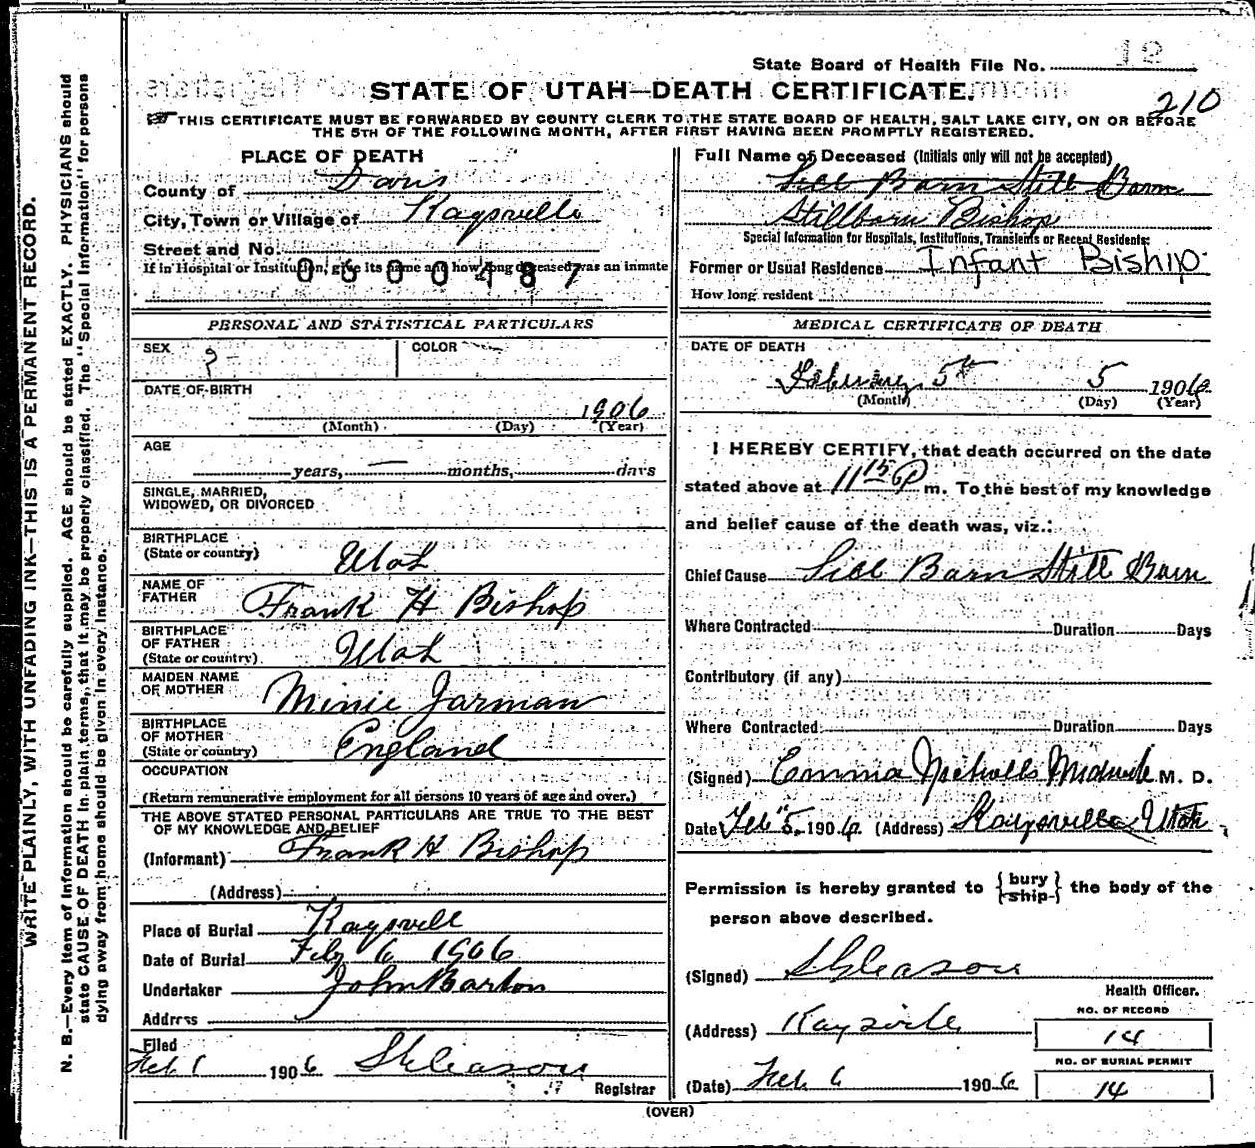 State Board of Health File No. 12
STATE OF UTAH—DEATH CERTIFICATE.
210
THIS CERTIFICATE MUST BE FORWARDED BY COUNTY CLERK TO THE STATE BOARD OF HEALTH, SALT LAKE CITY, ON OR BEFORE
THE 5TH OF THE FOLLOWING MONTH, AFTER FIRST HAVING BEEN PROMPTLY REGISTERED.
WRITE PLAINLY, WITH UNFADING INK—THIS IS A PERMANENT RECORD.
N. B.—Every item of information should be carefully supplied. AGE should be stated EXACTLY. PHYSICIANS should
state CAUSE OF DEATH in plain terms, that it may be properly classified. The "Special Information" for persons
dying away from home should be given in every instance.
PLACE OF DEATH
County of Davis
City, Town or Village of Kaysville
Street and No.
If in Hospital or Institution, give its name and how long deceased was an inmate
0600487
PERSONAL AND STATISTICAL PARTICULARS
SEX ?
COLOR
DATE OF BIRTH
1906
(Month) (Day) (Year)
AGE
years, — months, days
SINGLE, MARRIED,
WIDOWED, OR DIVORCED
BIRTHPLACE
(State or country) Utah
NAME OF
FATHER Frank H Bishop
BIRTHPLACE
OF FATHER
(State or country) Utah
MAIDEN NAME
OF MOTHER Minie Jarman
BIRTHPLACE
OF MOTHER
(State or country) England
OCCUPATION
(Return remunerative employment for all persons 10 years of age and over.)
THE ABOVE STATED PERSONAL PARTICULARS ARE TRUE TO THE BEST
OF MY KNOWLEDGE AND BELIEF
(Informant) Frank H Bishop
(Address)
Place of Burial Kaysvill
Date of Burial Feby 6 1906
Undertaker John Barton
Address
Filed
Feb 6 1906 S Gleason
Registrar
Full Name of Deceased (Initials only will not be accepted)
Still Barn
Stillborn Bishop
Special Information for Hospitals, Institutions, Transients or Recent Residents:
Former or Usual Residence Infant Biship
How long resident
MEDICAL CERTIFICATE OF DEATH
DATE OF DEATH
February 5th 5 1906
(Month) (Day) (Year)
I HEREBY CERTIFY, that death occurred on the date
stated above at 11 15 P m. To the best of my knowledge
and belief cause of the death was, viz.:
Chief Cause Still Barn
Where Contracted Duration Days
Contributory (if any)
Where Contracted Duration Days
(Signed) Emma Nicholls Midwife M. D.
Date Feb 5, 1906 (Address) Kaysville Utah
Permission is hereby granted to { bury ship } the body of the
person above described.
(Signed) S Gleason
Health Officer.
(Address) Kaysville
NO. OF RECORD
14
(Date) Feb 6 1906
NO. OF BURIAL PERMIT
14
(OVER)